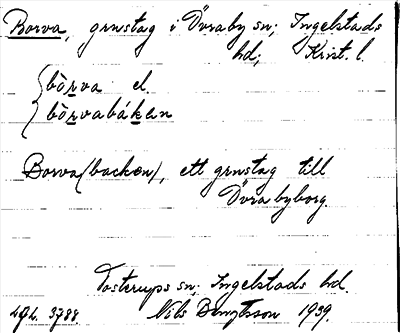 Borva, grnstag i Övraby sn; Ingelstads
hd; Krist. l.
bòrva el.
bòrvabáken
Borva(backen), ett grnstag till
Övrabyborg.
Tosterups sn; Ingelstads hd.
Nils Bengtsson 1939.
3788.